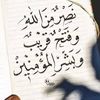 نَصْرٌ مِنَ اللَّهِ
وَفَتْحٌ قَرِيْبٌ
وَبَشِّرِ الْمُؤْمِنِيْنَ